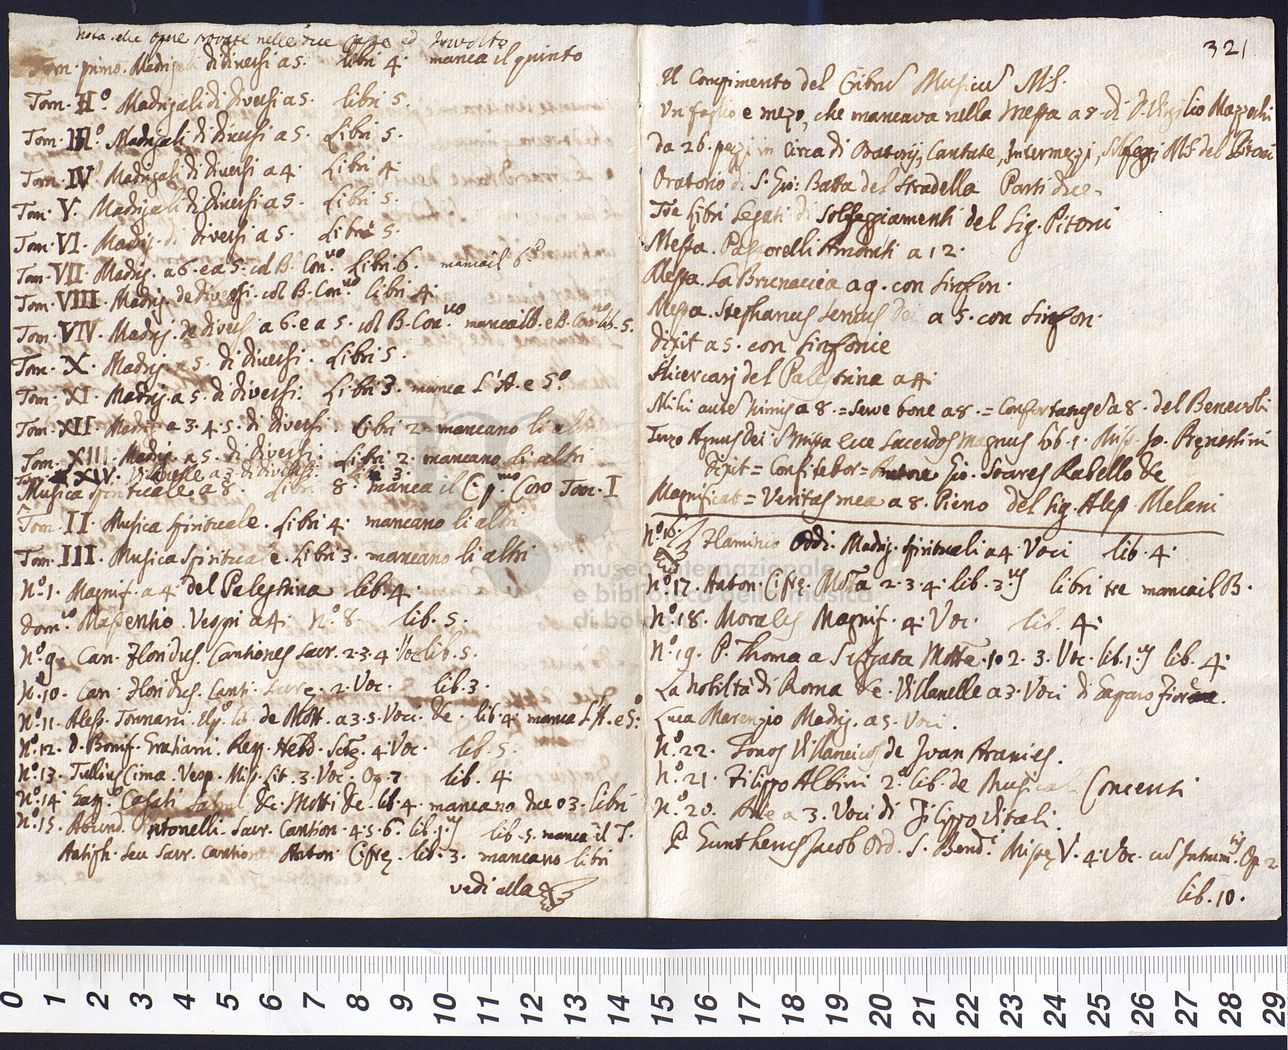 Nota delle opere trovate nelle due casse ed involto
Tom. primo. Madrigali di diversi a 5. libri 4. manca il quinto
Tom. IIº. Madrigali di diversi a 5. libri 5.
Tom. IIIº. Madrigali di diversi a 5. Libri 5.
Tom. IV. Madrigali di diversi a 4. Libri 4
Tom. V. Madrigali di diversi a 5. Libri 5.
Tom. VI. Madrig. di diversi a 5. Libri 5.
Tom. VII. Madrig. a 6. e a 5. col B. Con.uo Libri 6. manca il 6º
Tom. VIII. Madrig. de diversi. col B. Con.uo libri 4.
Tom. VIV. Madrig. de diversi a 6. e a 5. col B. Con.uo manca il B. e B. Con.uo lib. 5.
Tom. X. Madrig. a 5. di diversi. Libri 5.
Tom. XI. Madrig. a 5. di diversi. Libri 3. manca l'A. e 5º
Tom. XII. Madrig. a 3. 4. 5. di diversi Libri 2. mancano li altri
Tom. XIII. Madrig. a 5. di diversi. Libri 2. mancano li altri
Tom. XIV. a 3. di diversi. 3.
Musica spirituale a 8. Libri 8. manca il C. pmo Coro Tom. I
Tom. II. Musica spirituale. Libri 4. mancano li altri
Tom. III. Musica spirituale. Libri 3. mancano li altri
Nº. 1. Magnif. a 4. del Palestrina lib. 4.
Domco Massentio. Vespri a 4. Nº. 8 lib. 5.
Nº. 9. Can. Floridus. Cantiones Sacr. 2. 3. 4 Voc lib. 5.
Nº. 10. Can. Floridus. Canti. Sacre. 2. Voc. lib. 3.
Nº. 11. Aless. Tonnarri. lib. de Mott. a 3. 5. Voci. &c. lib. 4. manca l'A. e 5º.
Nº. 12. D. Bonif. Gratiani. Resp. Hebd. Sctę. 4. Voc. lib. 5.
Nº. 13. Tullius Cima. Vesp. Miss. Lit. 3. Voc. Op. 7 lib. 4.
Nº. 14 Gasp.º Casati &c. Motti &c. lib. 4. mancano due o 3. libri
Nº. 15. Abund. Antonelli. Sacr. Cantion. 4. 5. 6. lib. 1. lib. 5. manca il T.
Antiph. seu Sacr. cantione Anton. Cifrę. lib. 3. mancano libri
vedi alla
321
Il Compimento del Cribrum Musicum MS.
Un foglio e mezo, che mancava nella Messa a 8. di D. Virgilio Mazzochi
da 26. pezzi in circa di Oratorij, Cantate, Intermezzi, Solfeggi MS del Pitoni
Oratorio di S. Gio: Batta del Stradella Parti due
Tre libri legati di Solfeggiamenti del Sig. Pitoni
Messa. Pastorelli a 12.
Messa. La Brunaccia a 9. con Sinfon.
Messa. Stephanus Servus Dei a 5. con Sinfon.
Dixit a 5. con Sinfonie
Ricercarj del Palestrina a 4.
Mihi autem nimis a 8. = Serve bone a 8. = Confortamini a 8. del Benevoli
Terzo Agnus Dei Missa Ecce Sacerdos magnus lib. 1. Miss. Jo. Pręnestini
Dixit = Confitebor = Gio. Soares Rabello &c
Magnificat = Veritas mea a 8. Pieno del Sig. Aless. Melani
Nº. 16. Flaminio Oddi. Madrig. spirituali a 4 Voci lib. 4.
Nº. 17. Anton. Cifrę. Motta 2. 3. 4. lib. 3. libri tre manca il B.
Nº. 18. Morales Magnif. 4. Voc. lib. 4.
Nº. 19. P. Thoma a Motte. 1. 2. 3. Voc. lib. 1. lib. 4.
La Nobiltà di Roma &c. Villanelle a 3. Voci di Gasparo Fiorino
Luca Marenzio Madrig. a 5. Voci.
Nº. 22. Tonos Villancicos de Juan Aranies.
Nº. 21. Filippo Albini 2º lib. de Musicali Concenti
Nº. 20. Arie a 3. Voci di Filippo Vitali.
P. Euntherus Jacob Ord. S. Bend.i Misę V. 4. Voc. cum Instrum. Op. 2
lib. 10.
museo internazionale
e biblioteca della musica
di bologna
0 1 2 3 4 5 6 7 8 9 10 11 12 13 14 15 16 17 18 19 20 21 22 23 24 25 26 27 28 29